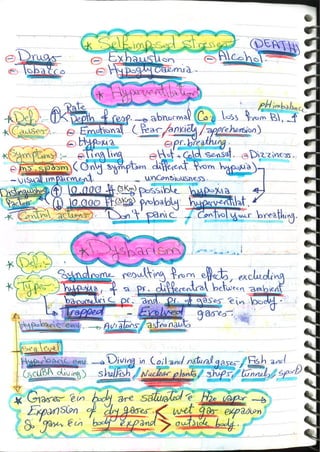 * Self imposed stresses (DEATH)
⊖ Drugs ⊖ Exhaustion ⊖ Alcohol
⊖ Tobacco ⊖ Hypoglycaemia.
* Hyperventilation
pH imbalance
* Def. ↑ Rate
Depth of resp. → abnormal Co₂ loss from Bl.
* Causes ⊖ Emotional (Fear/anxiety/apprehension)
⊖ Hypoxia ⊖ pr. breathing.
* Symptoms ⊖ Tingling ⊖ Hot + Cold sensat. ⊖ Dizziness.
⊖ ms. spasm (Only symptom different from hypoxia)
- visual impairment - unconsciousness
Distinguishing Factor ↑ 10,000 ft (3km) possible hypoxia
↓ 10,000 ft (3km) probably hyperventilat.
* Control actions: Don't panic / Control your breathing.
* Dysbarism
* Def.
* Types Syndrome resulting from effects, excluding
hypoxia, of a pr. differential between ambient
barometric pr. and pr. of gases in body.
→ Trapped Evolved gases.
Hypobaric env. → Aviators / astronauts
Sea Level
Hyperbaric env. → Diving in (oil and natural gases / Fish and
(SCUBA diving) shellfish / Nuclear plants / ships / tunnels / sport)
* Gases in body are saturated e H₂o vapor →
Expansion of dry gases < wet gas expansion
So gases in body expand > outside body.